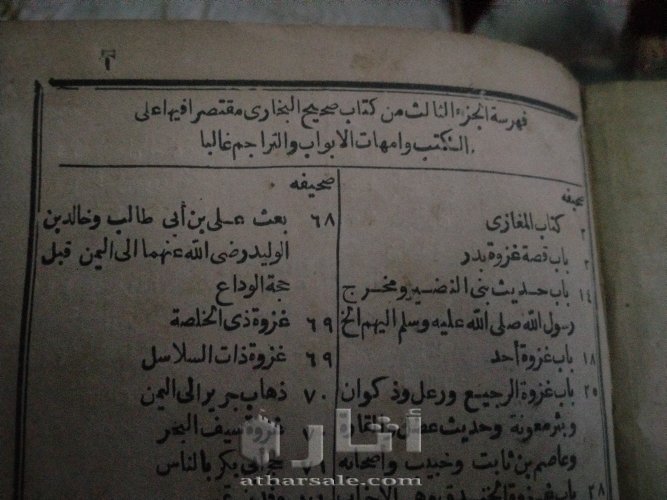 ٢
فهرسة الجزء الثالث من كتاب صحيح البخارى مقتصرا فيها على
الكتب وامهات الابواب والتراجم غالبا
صحيفه
٢ كتاب المغازى
٢ باب قصة غزوة بدر
١٤ باب حديث بنى النضير ومخرج
رسول الله صلى الله عليه وسلم اليهم الخ
١٨ باب غزوة أحد
٢٥ باب غزوة الرجيع ورعل وذكوان
وبئر معونة وحديث عضل والقارة
وعاصم بن ثابت وخبيب وأصحابه
٢٨
صحيفه
٦٨ بعث على بن أبى طالب وخالد بن
الوليد رضى الله عنهما الى اليمن قبل
حجة الوداع
٦٩ غزوة ذى الخلصة
٦٩ غزوة ذات السلاسل
٧٠ ذهاب جرير الى اليمن
غزوة سيف البحر
حج أبى بكر بالناس
أثارة
atharsale.com